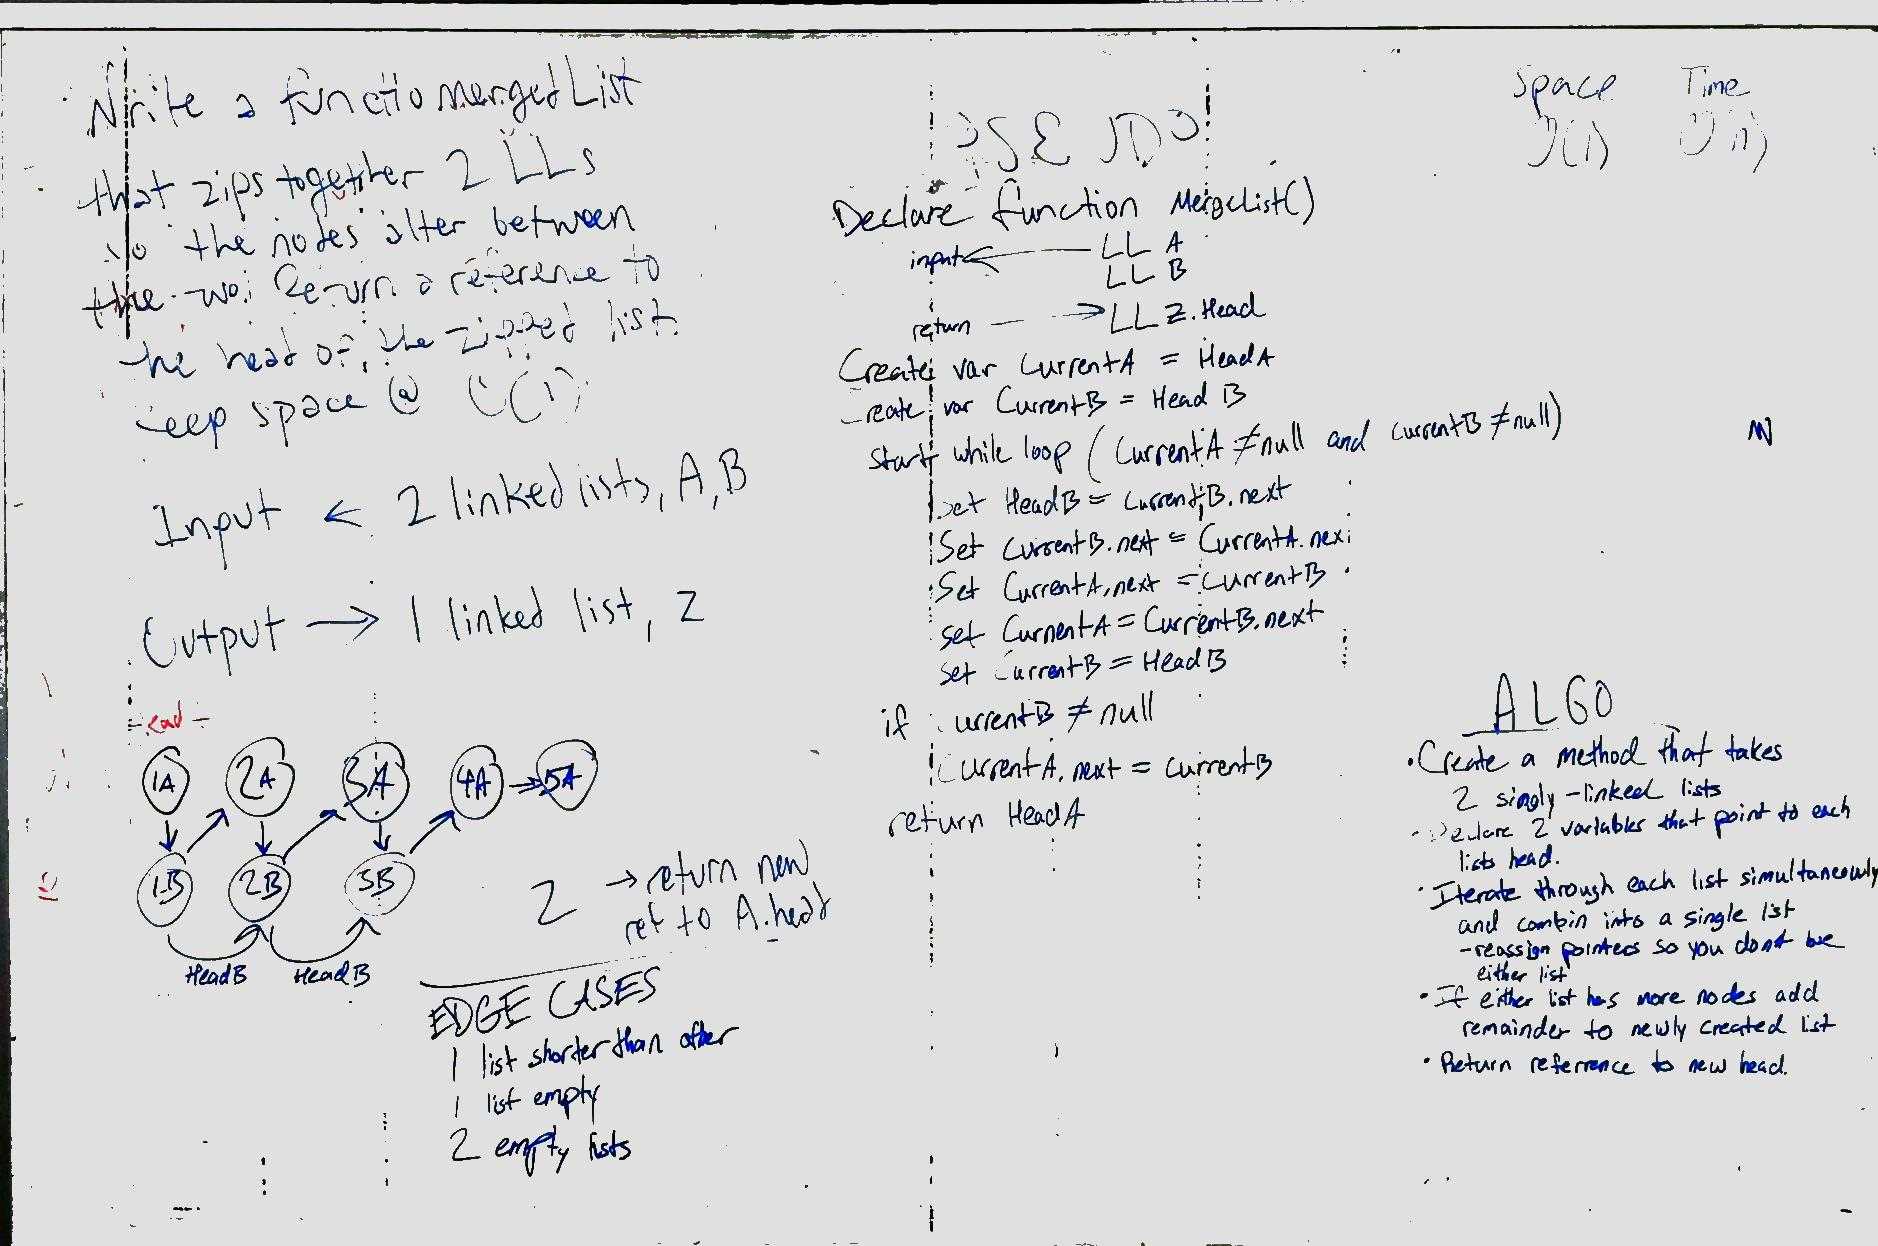 Write a functio mergedList
that zips together 2 LLs
so the nodes alter between
the two. Return a reference to
the head of, the zipped list.
keep space @ O(1)
Input ← 2 linked lists, A, B
Output → 1 linked list, Z
1A 2A 3A 4A → 5A
1B 2B 3B
HeadB HeadB
Z → return new
ref to A.head
EDGE CASES
1 list shorter than other
1 list empty
2 empty lists
Declare function MergeList()
input ← LL A
LL B
return → LL Z.Head
Create var CurrentA = HeadA
Create var CurrentB = Head B
start while loop (CurrentA ≠ null and currentB ≠ null)
Set HeadB = CurrentB.next
Set CurrentB.next = CurrentA.next
Set CurrentA.next = CurrentB
set CurrentA = CurrentB.next
set CurrentB = HeadB
if CurrentB ≠ null
CurrentA.next = currentB
return HeadA
Space Time
O(1) O(n)
N
ALGO
• Create a method that takes
2 singly-linked lists
• Declare 2 variables that point to each
lists head.
• Iterate through each list simultaneously
and combin into a single list
- reassign pointers so you dont
either list
• If either list has more nodes add
remainder to newly created list
• Return referrence to new head.